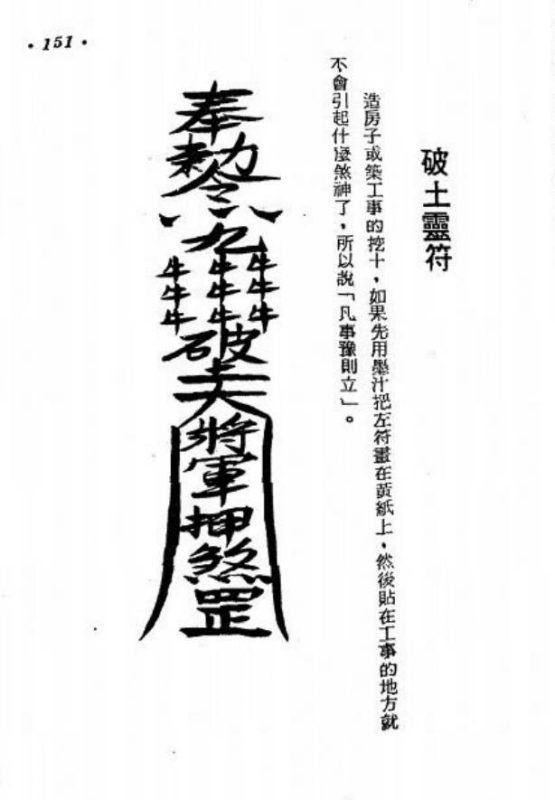 ·151·
破土靈符
造房子或築工事的挖十，如果先用墨汁把左符畫在黃紙上，然後貼在工事的地方就
不會引起什麼煞神了，所以說「凡事豫則立」。
奉勅令九牛牛牛牛牛牛牛牛牛破土大將軍押煞罡